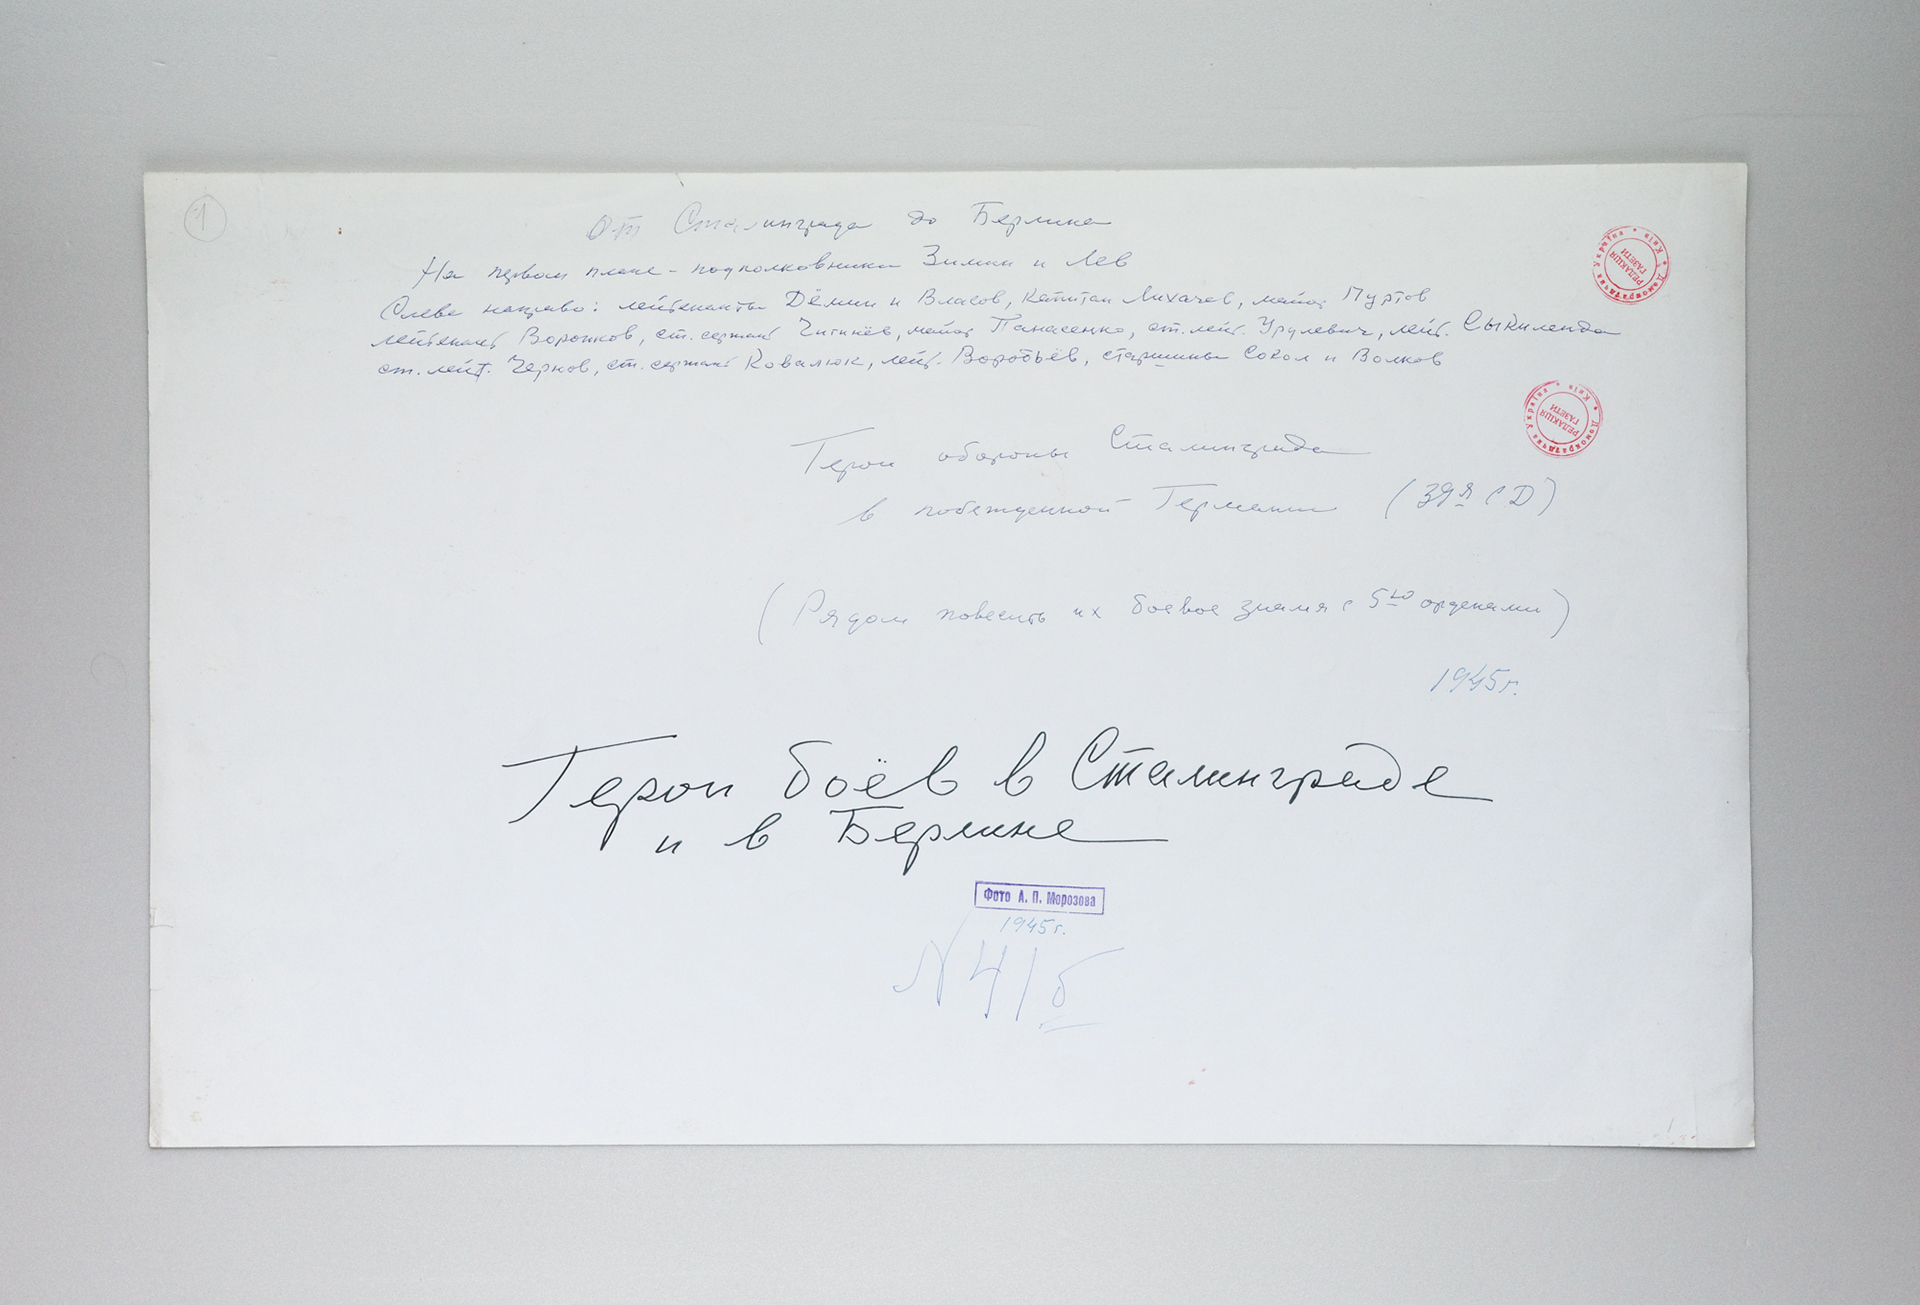 1
От Сталинграда до Берлина
На первом плане - подполковники Зимин и Лев
Слева направо: лейтенанты Дёмин и Власов, капитан Лихачев, майор Пуртов
лейтенант Воронков, ст. сержант майор Панасенко, ст. лейт. Урулевич, лейт.
ст. лейт. Чернов, ст. сержант Ковалюк, лейт. Воробьёв, старшины Сокол и Волков
Герои обороны Сталинграда
в побежденной Германии (39я СД)
(Рядом повесить их боевое знамя с 5ю орденами)
1945г.
Герои боёв в Сталинграде
и в Берлине
Фото А. П. Морозова
1945г.
N 41б
Демократична Україна * Київ *
РЕДАКЦІЯ
ГАЗЕТИ
Демократична Україна * Київ *
РЕДАКЦІЯ
ГАЗЕТИ